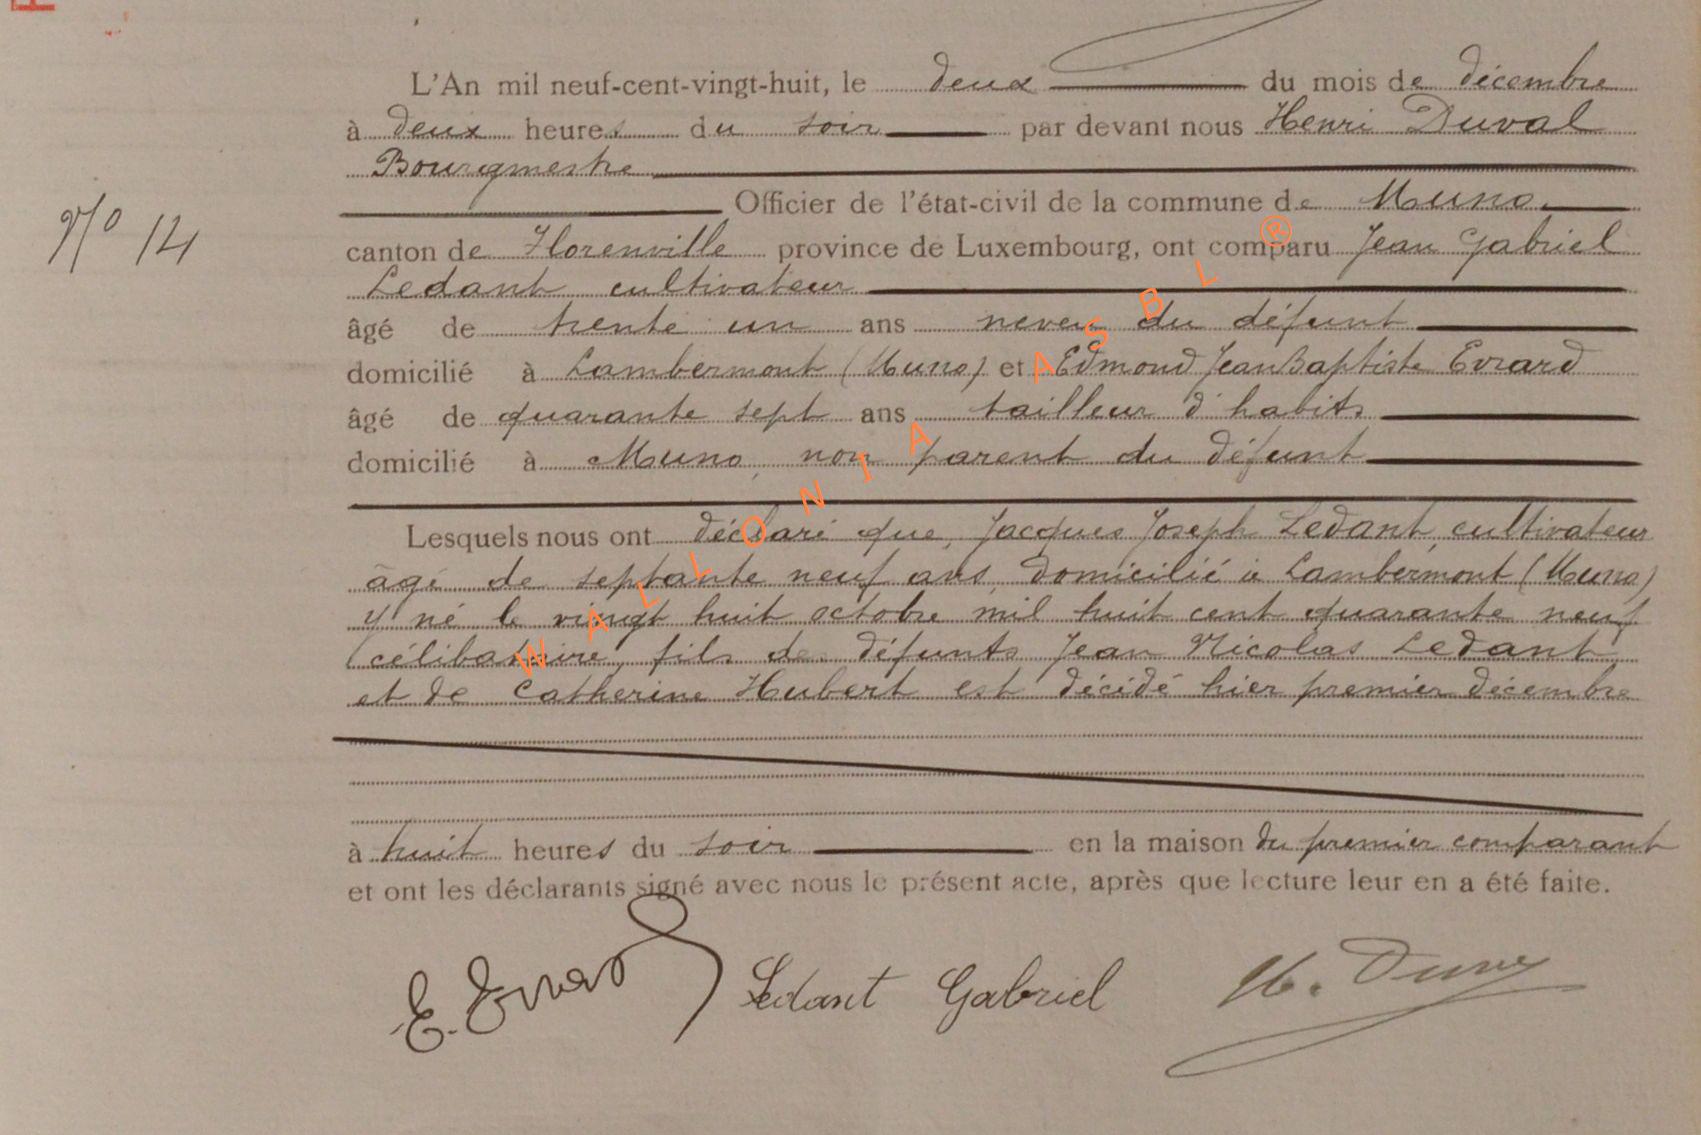 L'An mil neuf-cent-vingt-huit, le deux du mois de décembre
à deux heures du soir par devant nous Henri Duval
Bourgmestre
Officier de l'état-civil de la commune de Muno
N° 14
canton de Florenville province de Luxembourg, ont comparu Jean Gabriel
Ledant cultivateur
âgé de trente un ans neveu du défunt
domicilié à Lambermont (Muno) et Edmond Jean Baptiste Evrard
âgé de quarante sept ans tailleur d'habits
domicilié à Muno, non parent du défunt
Lesquels nous ont déclaré que, Jacques Joseph Ledant, cultivateur
âgé de septante neuf ans, domicilié à Lambermont (Muno)
y né le vingt huit octobre mil huit cent quarante neuf
célibataire, fils de défunts Jean Nicolas Ledant
et de Catherine Hubert est décédé hier premier décembre
à huit heures du soir en la maison du premier comparant
et ont les déclarants signé avec nous le présent acte, après que lecture leur en a été faite.
E. Evrard Ledant Gabriel H. Duval
WALLONIA ASBL ®